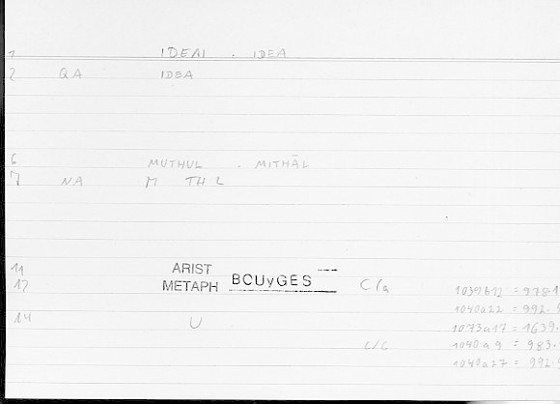 1 IDEAI . IDEA
2 QA IDEA
6 MUTHUL . MITHĀL
7 NA M TH L
11 ARIST
12 METAPH BOUyGES C/a
1039b12 = 978.1
1040a22 = 992.
14 U 1073a17 = 1639.
L/C 1040a9 = 983.
1040a27 = 992.